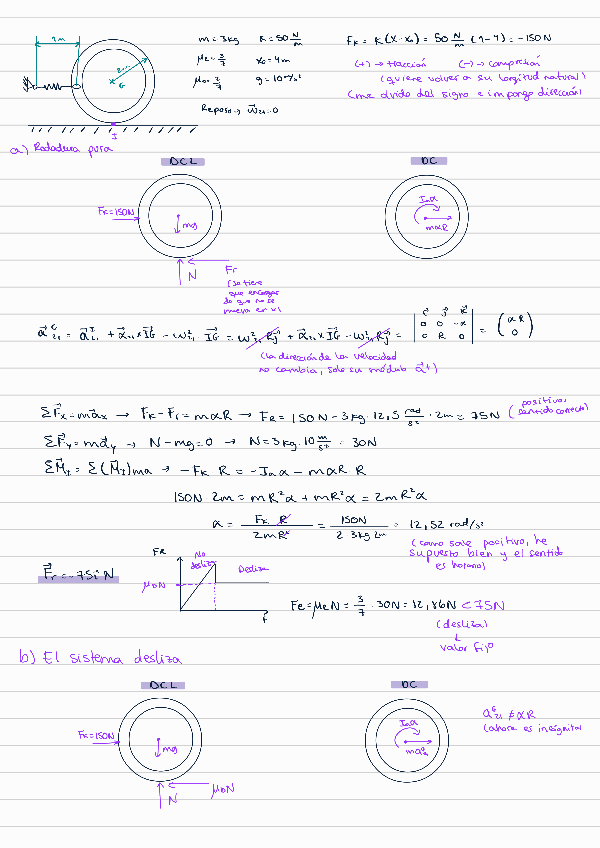 1m
2m
G
I
m = 3kg K = 50 N/m
μE = 3/7 x₀ = 4m
μD = 2/7 g = 10 m/s²
Reposo → ω⃗₂₁ = 0
FK = K(x - x₀) = 50 N/m (1 - 4) = -150N
(+) → tracción (-) → compresión
(quiere volver a su longitud natural)
(me olvido del signo e impongo dirección)
a) Rodadura pura
DCL
DC
FK = 150N
mg
N
Fr
(Se tiene
que encargar
de que no se
mueva en v)
Iα
mαR
= ω²₂₁Rj + α⃗₂₁ × IG - ω²₂₁Rj =
i j k
0 0 -α
0 R 0
= (αR
0)
(la dirección de la velocidad
no cambia, solo su módulo
ΣF⃗x = ma⃗x → FK - Fr = mαR → FR = 150N - 3kg · 12,5 rad/s² · 2m = 75N (positivo,
sentido correcto)
ΣF⃗y = ma⃗y → N - mg = 0 → N = 3kg · 10 m/s² = 30N
ΣM⃗I = Σ(M⃗I)ma → -FK R = -Iα - mαR R
150N · 2m = mR²α + mR²α = 2mR²α
α = FK R / 2mR² = 150N / 2 · 3kg 2m = 12,52 rad/s²
(como sale positivo, he
supuesto bien y el sentido
es horario)
F⃗r = -75i N
FR
No
desliza
Desliza
μDN
F
Fe = μeN = 3/7 · 30N = 12,86N < 75N
(desliza)
↓
valor fijo
b) El sistema desliza
DCL
DC
FK = 150N
mg
N
μDN
Iα
a₂₁ᴳ ≠ αR
(ahora es incógnita)